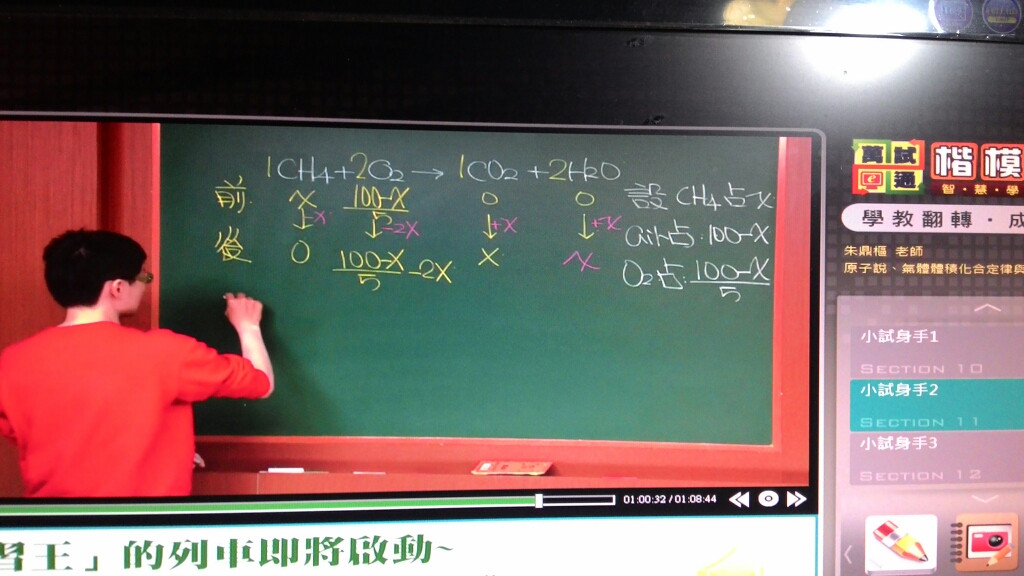 1CH4+2O2→1CO2+2H2O
前 X 100-X/5 0 0 設 CH4占 X
↓-X ↓-2X ↓+X ↓+X air占:100-X
後 0 100-X/5-2X X X O2占:100-X/5
萬試e通
楷模
智・慧・學
學教翻轉・成
朱鼎樞 老師
原子說、氣體體積化合定律與
小試身手1
SECTION 10
小試身手2
SECTION 11
小試身手3
SECTION 12
01:00:32 / 01:08:44
習王」的列車即將啟動~